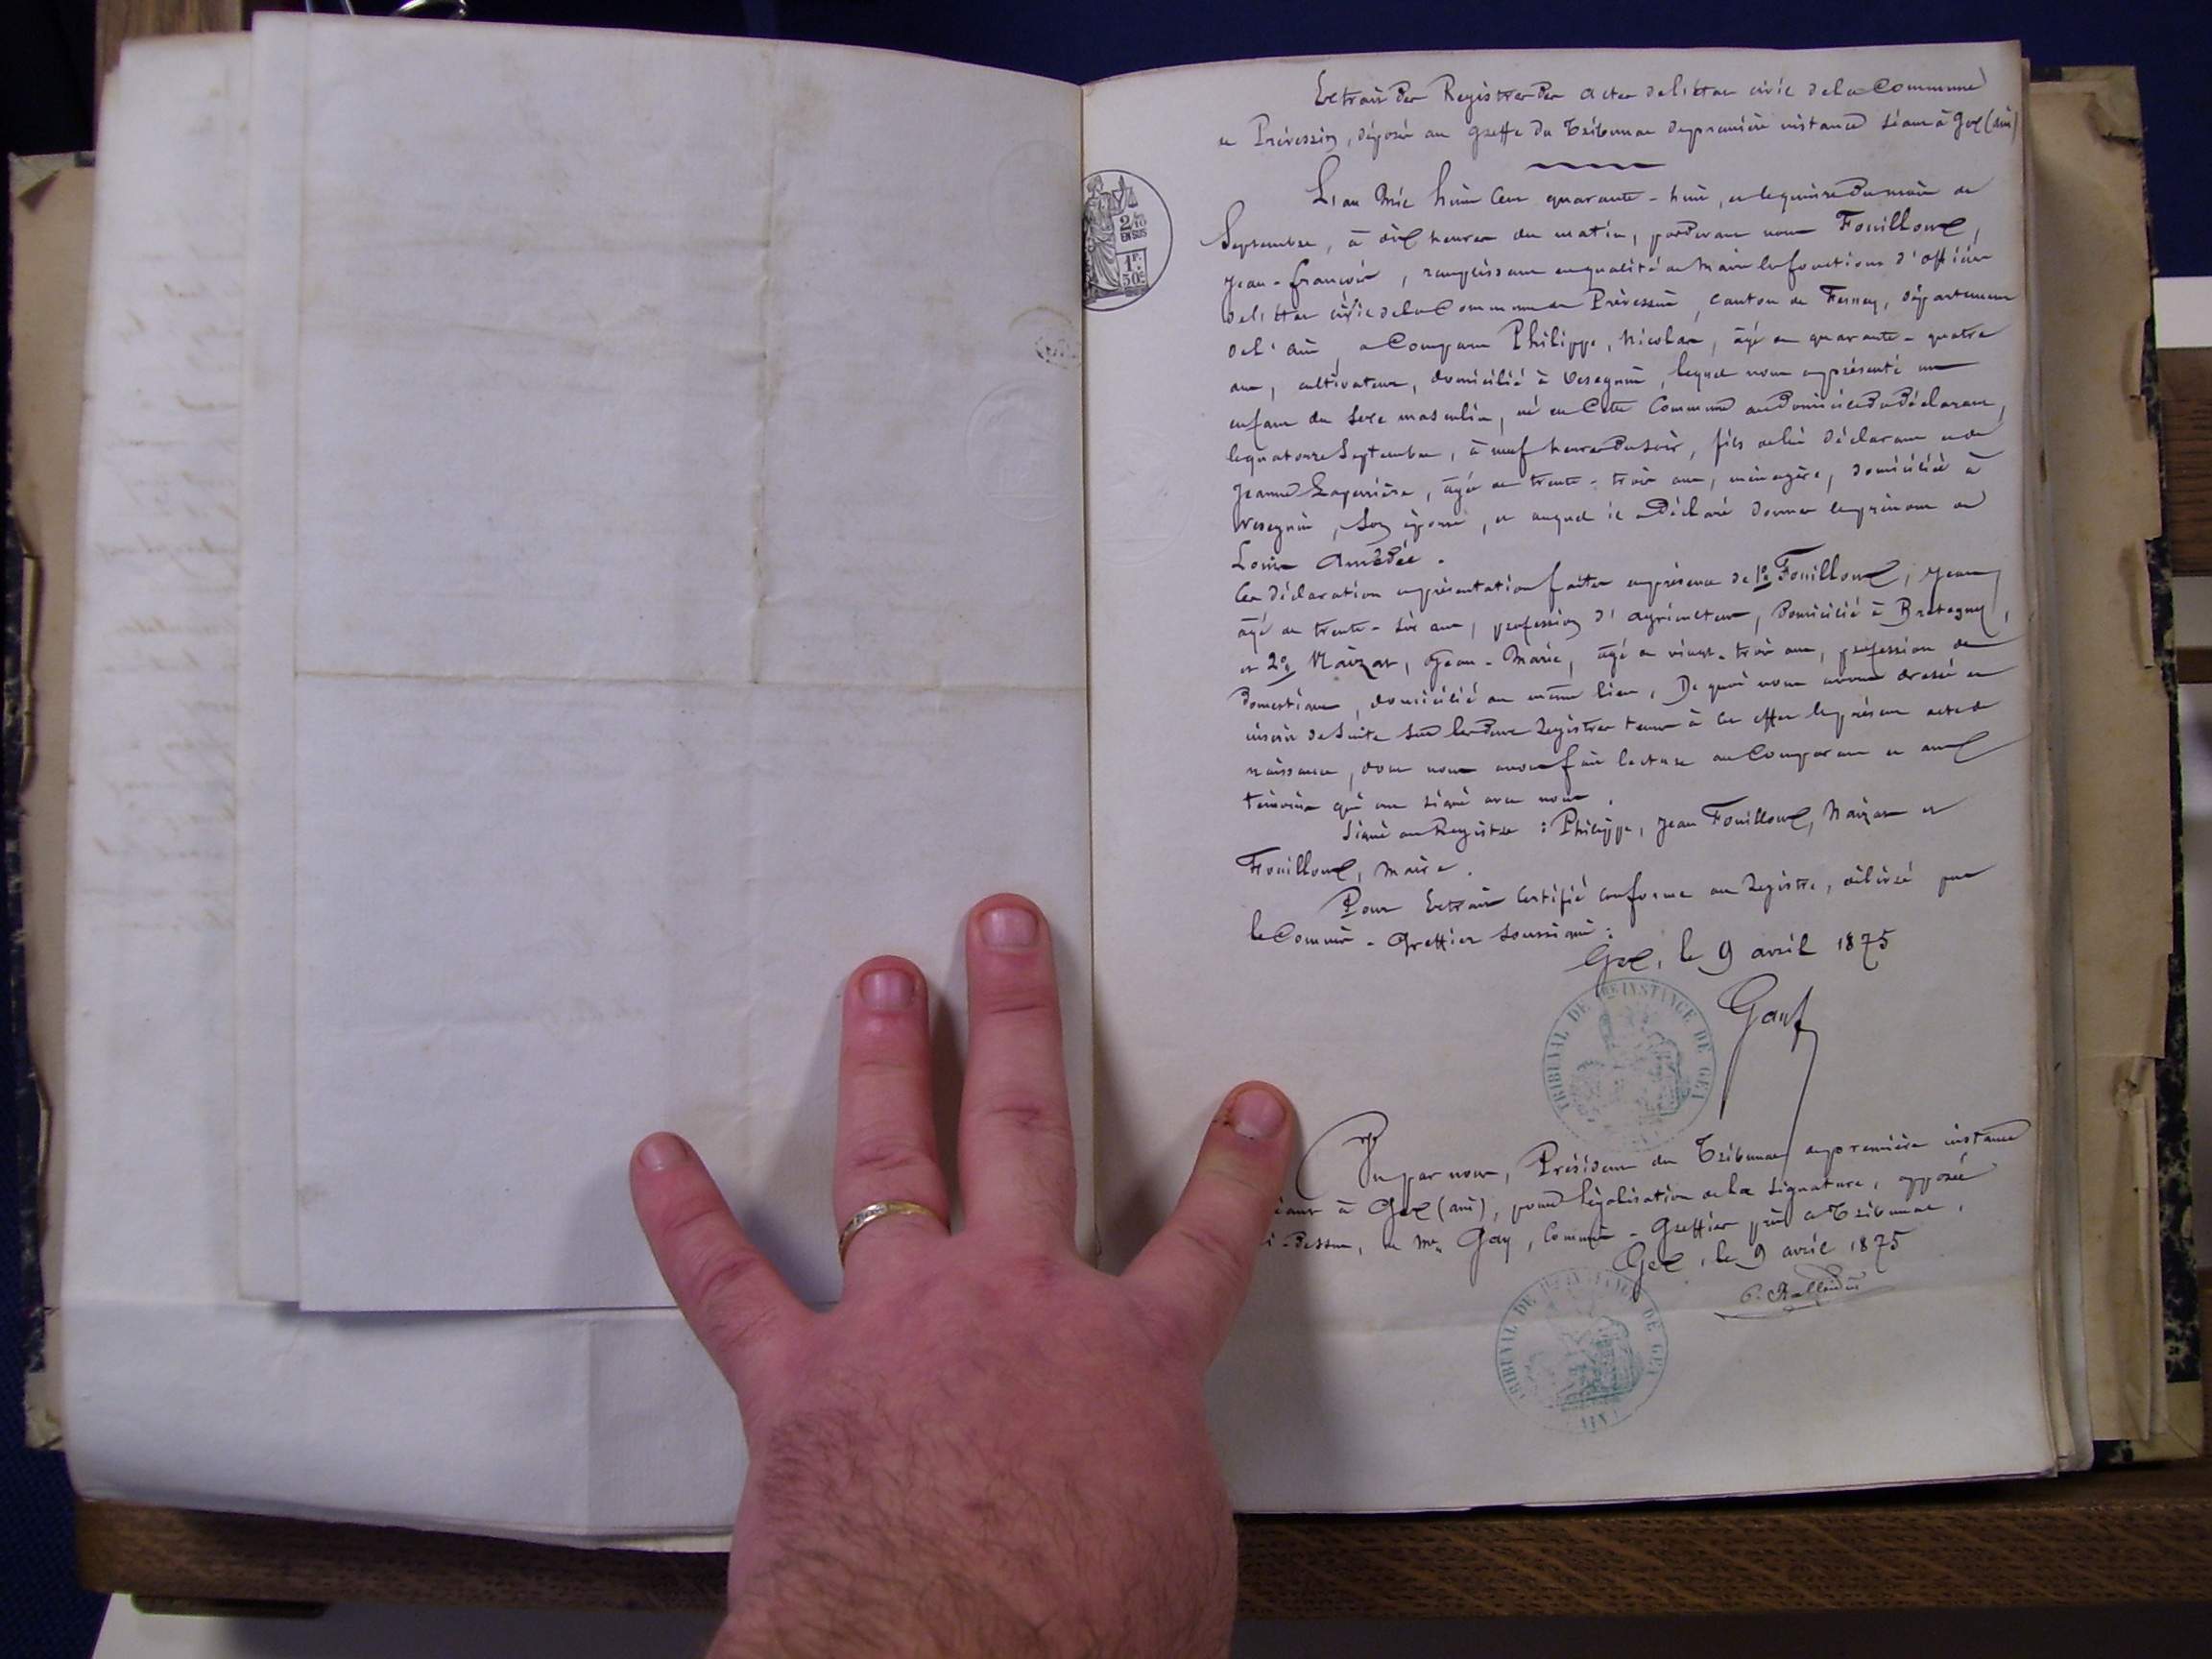 Extrait des Registres des actes de l'état civil de la Commune
de Prévessin, déposés au greffe du Tribunal de première instance séant à Gex (ain)
L'an Mil huit Cent quarante-huit, et le quinze du mois de
Septembre, à dix heures du matin, pardevant nous Fouilloux,
Jean-françois, remplissant en qualité de Maire les fonctions d'officier
de l'état civil de la Commune de Prévessin, Canton de Ferney, département
de l'ain, a Comparu Philippe, Nicolas, âgé de quarante-quatre
ans, cultivateur, domicilié à Vesegnin, lequel nous a présenté un
enfant du sexe masculin, né en Cette Commune au domicile du déclarant,
le quatorze Septembre, à neuf heures du soir, fils de lui déclarant et de
Jeanne Laperrière, âgée de trente-trois ans, ménagère, domiciliée à
Vesegnin, son épouse, et auquel il a déclaré donner les prénoms de
Louis Amédée.
Ces déclaration et présentation faites en présence de 1º Fouilloux, Jean,
âgé de trente-six ans, profession d'agriculteur, domicilié à Bretagny,
et 2º Naizat, Jean-Marie, âgé de vingt-trois ans, profession de
domestique, domicilié au même lieu. De quoi nous avons dressé et
inscrit de suite sur les deux registres tenus à cet effet le présent acte de
naissance, dont nous avons fait lecture au Comparant et aux
témoins qui ont signé avec nous.
Signé au Registre : Philippe, Jean Fouilloux, Naizat et
Fouilloux, maire.
Pour Extrait Certifié conforme au registre, délivré par
le Commis-Greffier soussigné :
Gex, le 9 avril 1875
Gay
TRIBUNAL DE 1RE INSTANCE DE GEX
Vu par nous, Président du Tribunal de première instance
séant à Gex (ain), pour légalisation de la signature, apposée
ci-dessus, de Me Gay, Commis-Greffier près ce Tribunal.
Gex, le 9 avril 1875
TRIBUNAL DE 1RE INSTANCE DE GEX
(AIN)
2/10
EN SUS
1F.
50C